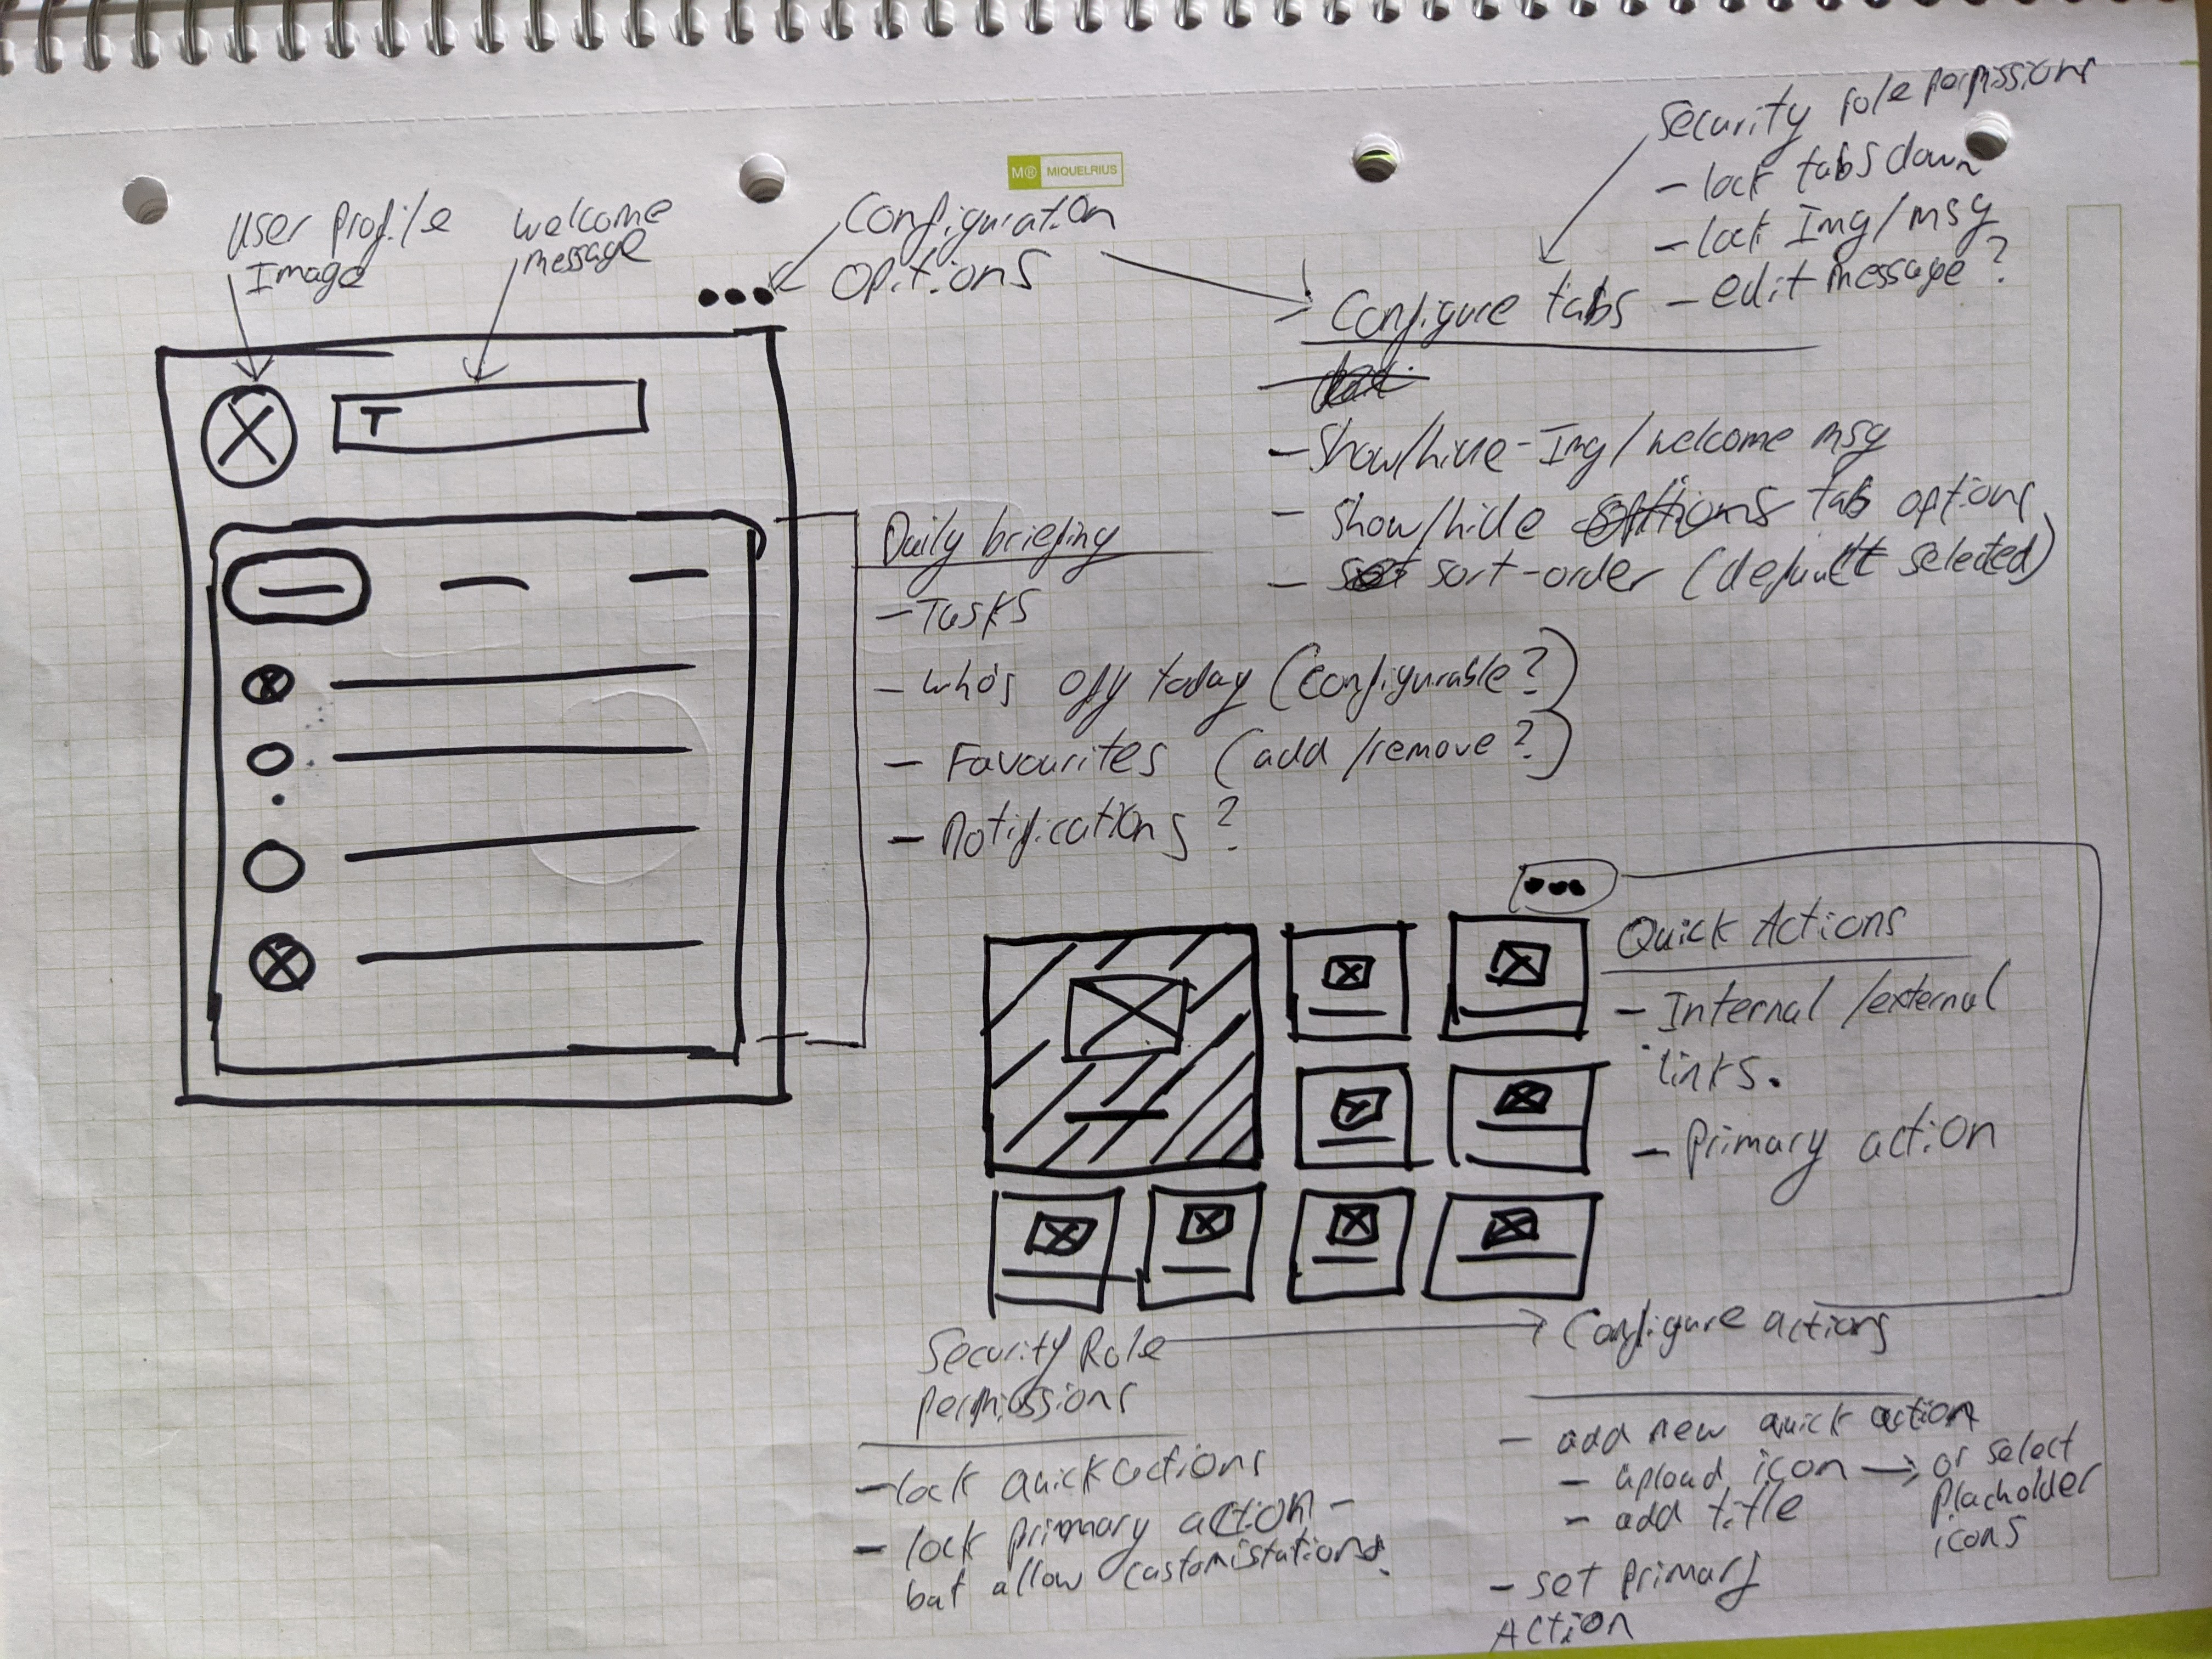 M® MIQUELRIUS
User Profile
Image
welcome
message
Configuration
options
Security role permissions
- lock tabs down
- lock Img/msg
- edit message?
Configure tabs
- Show/hide - Img/welcome msg
- Show/hide options tab options
- sort-order (default selected)
T
Daily briefing
- Tasks
- who's off today (configurable?)
- Favourites (add/remove?)
- Notifications?
Quick Actions
- Internal/external
links.
- Primary action
Security Role
permissions
- lock quick actions
- lock primary action -
but allow customistations.
Configure actions
- add new quick action
- upload icon → or select
placholder
icons
- add title
- set primary
Action